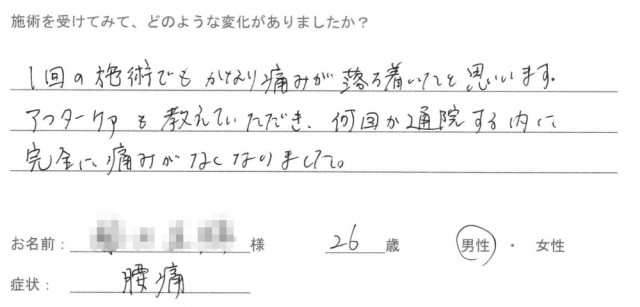 施術を受けてみて、どのような変化がありましたか？
1回の施術でもかなり痛みが落ち着いてと思いいます。
アフターケアも教えていただき、何回か通院する内に
完全に痛みがなくなりました。
お名前： 様 26歳 男性・女性
症状： 腰痛